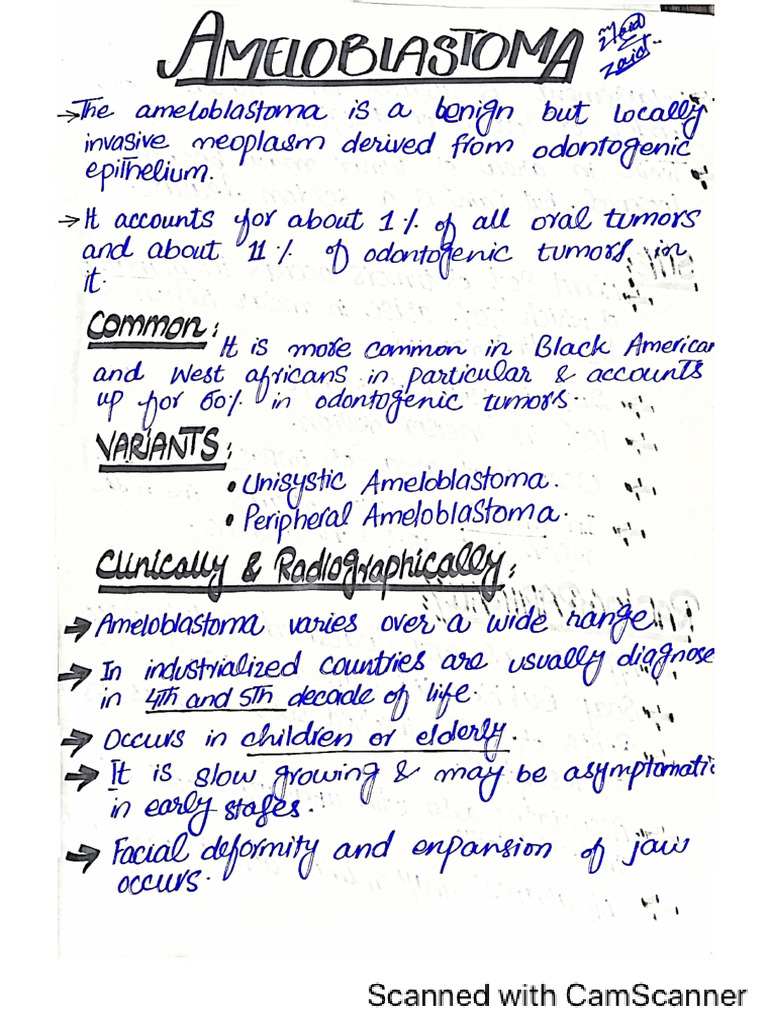 AMELOBLASTOMA
Zaid..
→The ameloblastoma is a benign but locally
invasive neoplasm derived from odontogenic
epithelium.
→ It accounts for about 1% of all oral tumors
and about 11% of odontogenic tumors in
it.
Common:
It is more common in Black American
and West africans in particular & accounts
up for 60% in odontogenic tumors.
VARIANTS:
• Unisystic Ameloblastoma.
• Peripheral Ameloblastoma.
Clinically & Radiographically:
→ Ameloblastoma varies over a wide range.
→ In industrialized countries are usually diagnose
in 4th and 5th decade of life.
→ Occurs in children or elderly.
→ It is slow growing & may be asymptomatic
in early stages.
→ Facial deformity and enpansion of jaw
occurs.
Scanned with CamScanner